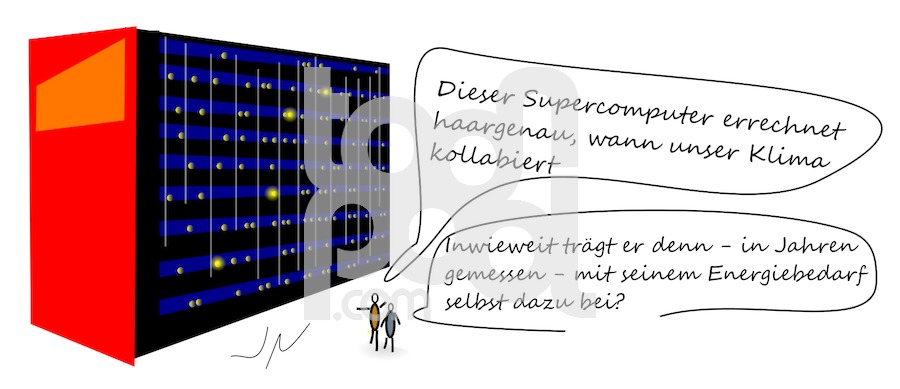 Dieser Supercomputer errechnet
haargenau, wann unser Klima
kollabiert
Inwieweit trägt er denn - in Jahren
gemessen - mit seinem Energiebedarf
selbst dazu bei?
toonpool
.com
JN